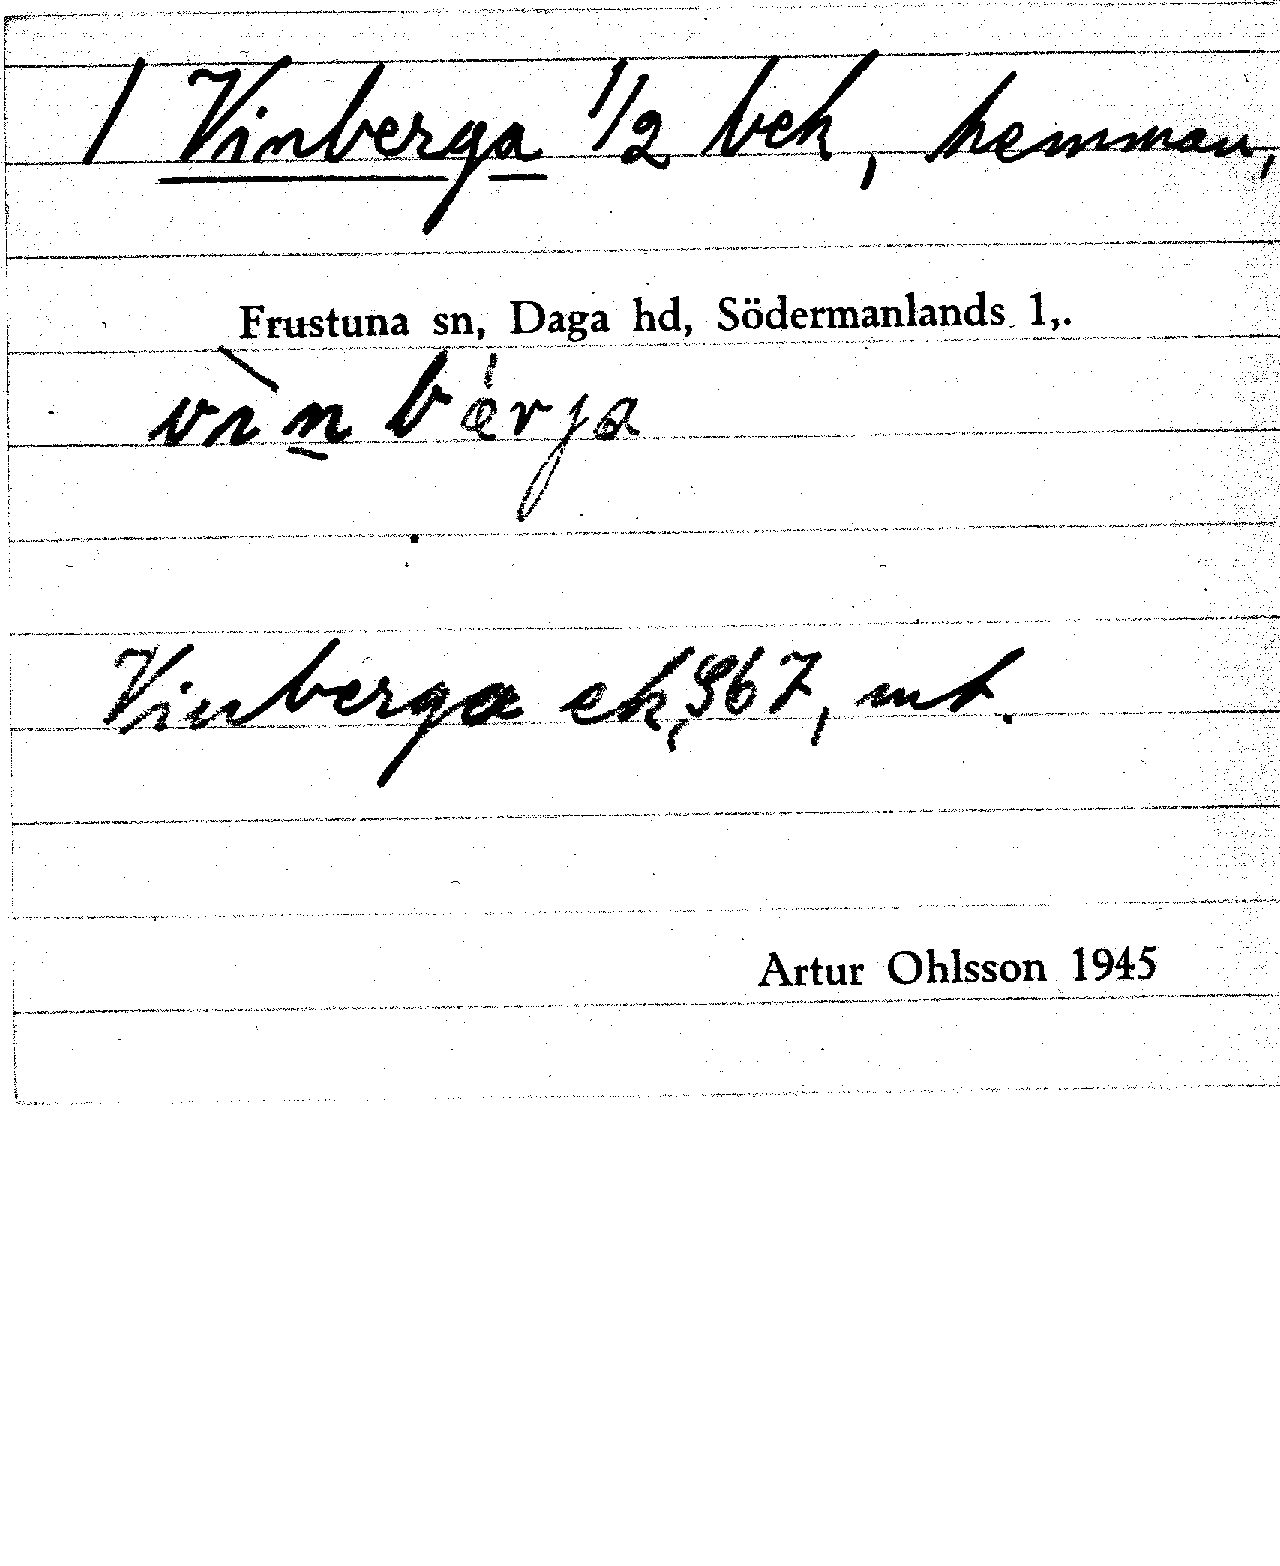 / Vinberga 1/2 bek, hemman,
Frustuna sn, Daga hd, Södermanlands l,.
vìn bǽrja
Vinberga ek, 967, mt.
Artur Ohlsson 1945